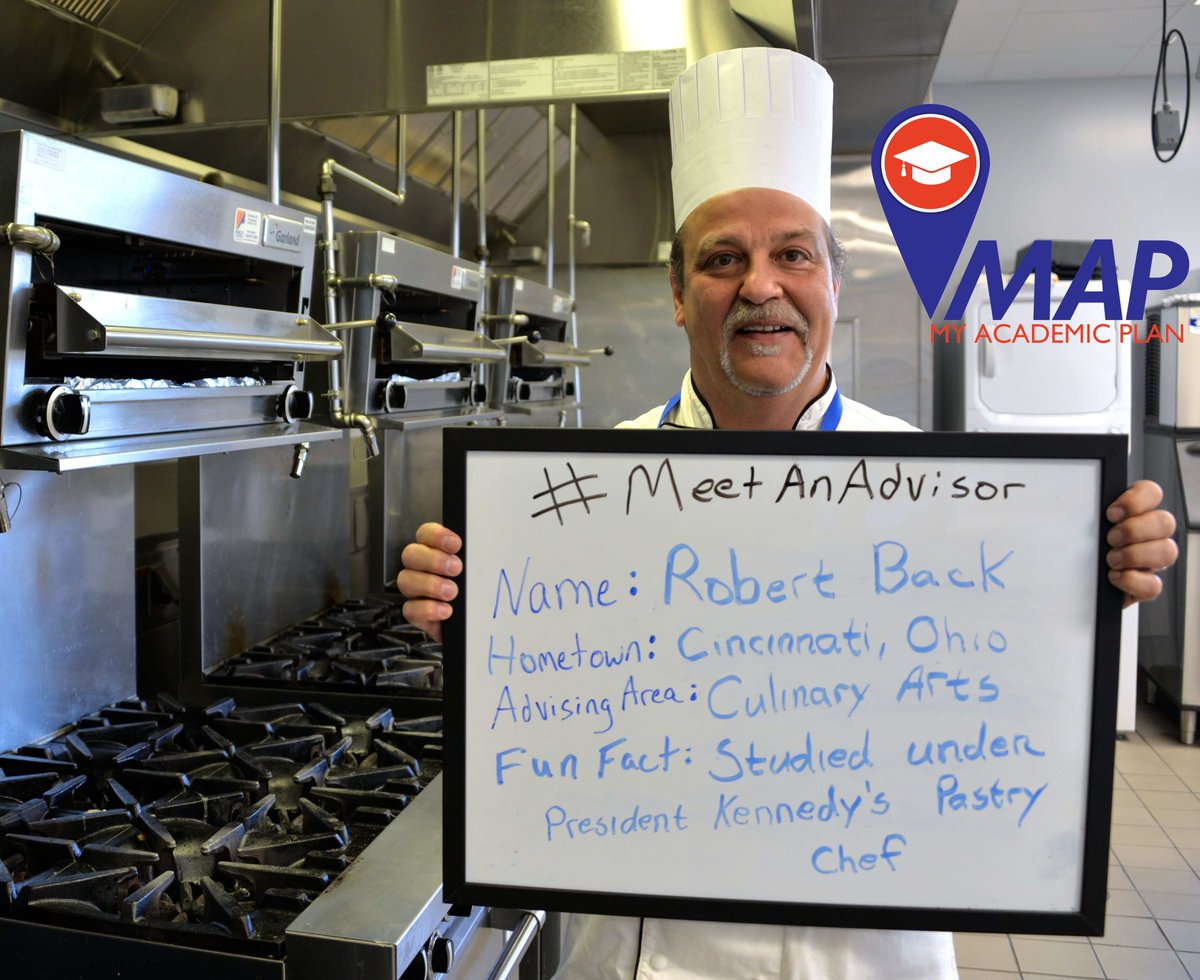 Garland
MAP
MY ACADEMIC PLAN
#MeetAnAdvisor
Name: Robert Back
Hometown: Cincinnati, Ohio
Advising Area: Culinary Arts
Fun Fact: Studied under
President Kennedy's Pastry
Chef